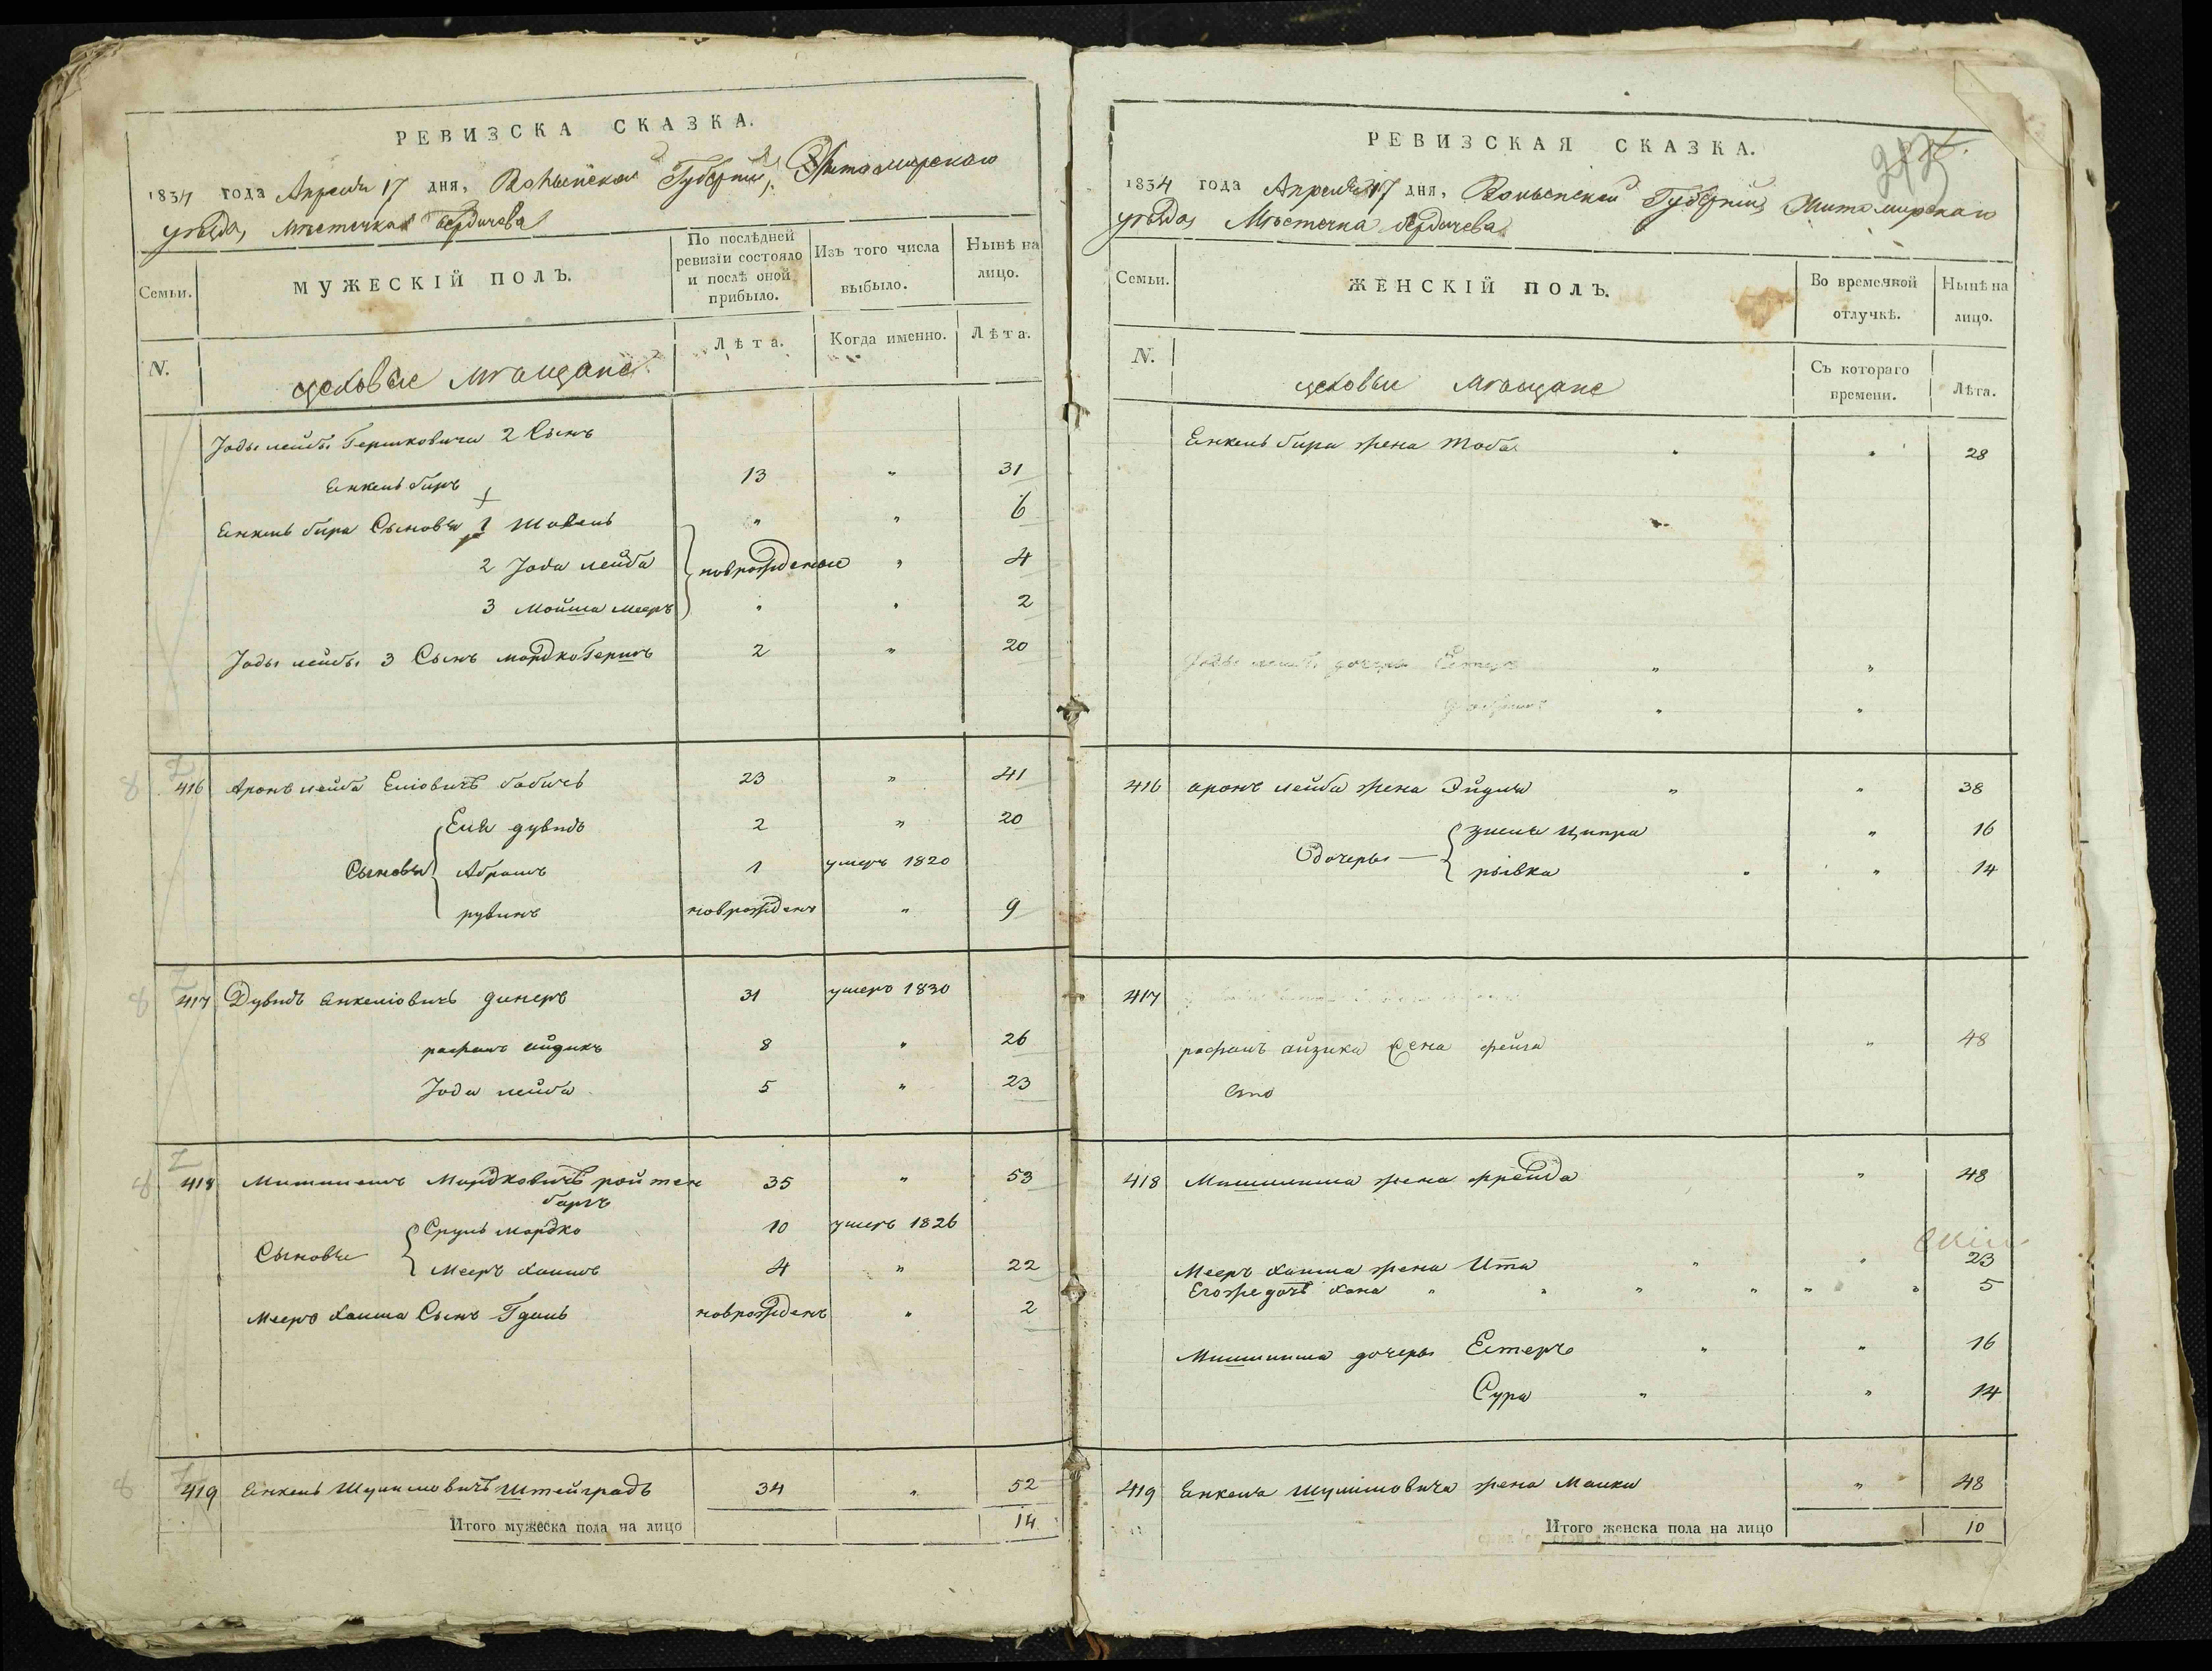 РЕВИЗСКА СКАЗКА.
1834 года Апреля 17 дня, Волынской Губернии, Житомирскаго
уѣзда, Мѣстечка Бердичева
Семьи.
МУЖЕСКІЙ ПОЛЪ.
По послѣдней ревизіи состояло и послѣ оной прибыло.
Изъ того числа выбыло.
Нынѣ на лицо.
N.
цеховые мѣщане
Лѣта.
Когда именно.
Лѣта.
Іоды лейбы Гершковича 2 Сынъ
Енкель биръ 13 " 31
Енкель бира Сыновья 1 " " 6
2 Іода лейба новорожденые " 4
3 Мойша мееръ " " 2
Іоды лейбы 3 Сынъ мордко Гершъ 2 " 20
416 Аронъ лейба Еліовичъ бабичь 23 " 41
Сыновья Еля дувидъ 2 " 20
Абрамъ 1 умеръ 1820
рувинъ новорожденъ " 9
417 Дувидъ Енкеліовичь динеръ 31 умеръ 1830
8 " 26
Іода лейба 5 " 23
418 Мордковичъ ройтен
баргъ 35 " 53
Сыновья Сруль мордко 10 умеръ 1826
Мееръ хаимъ 4 " 22
Мееръ хаима Сынъ Гдаль новорожденъ " 2
419 Енкель Шулимовичъ Штейградъ 34 " 52
Итого мужеска пола на лицо 14
РЕВИЗСКАЯ СКАЗКА.
1834 года Апреля 17 дня, Волынской Губернии, Житомирскаго
уѣзда, Мѣстечка Бердичева
Семьи.
ЖЕНСКІЙ ПОЛЪ.
Во временной отлучкѣ.
Нынѣ на лицо.
N.
цеховые мѣщане
Съ котораго времени.
Лѣта.
Енкель бира жена Тоба " " 28
Іоды лейбы дочери " "
" "
416 аронъ лейбы жена Эйдля " " 38
дочеры ципра " 16
рывка " " 14
417
айзика жена фейга " 48
418 жена фрейда " 48
Мееръ хаима жена Ита " " 23
Егоже дочь хана " " " " " " 5
дочеры Естеръ " " 16
Сура " " 14
419 Енкеля Шулимовича жена Малки " 48
Итого женска пола на лицо 10